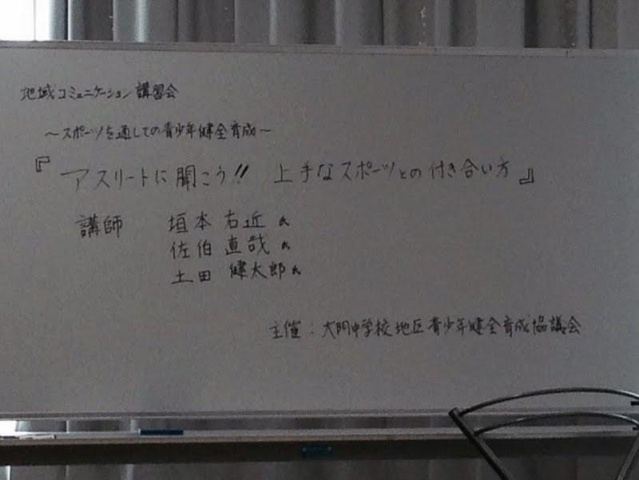 地域コミュニケーション講習会
～スポーツを通しての青少年健全育成～
『アスリートに聞こう!! 上手なスポーツとの付き合い方』
講師 垣本右近氏
佐伯直哉氏
土田健太郎氏
主催：大門中学校地区青少年健全育成協議会